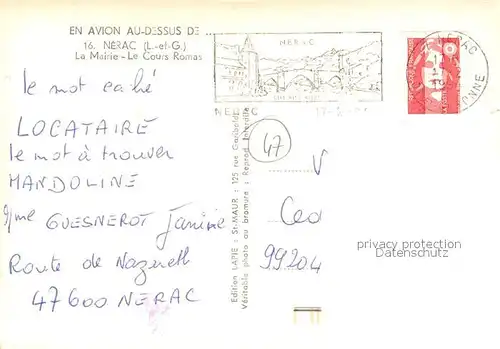 EN AVION AU-DESSUS DE ...
16. NERAC (L.-et-G.)
La Mairie - Le Cours Romas
NERAC
NERAC
le mot caché
LOCATAIRE
le mot à trouver
MANDOLINE
Mme GUESNEROT Janine
Route de Nazareth
47600 NERAC
Edition LAPIE : St-MAUR : 125 rue Garibaldi
Véritable photo au bromure : Reprod. Interdite
47
V
Ceo
99204
privacy protection
Datenschutz